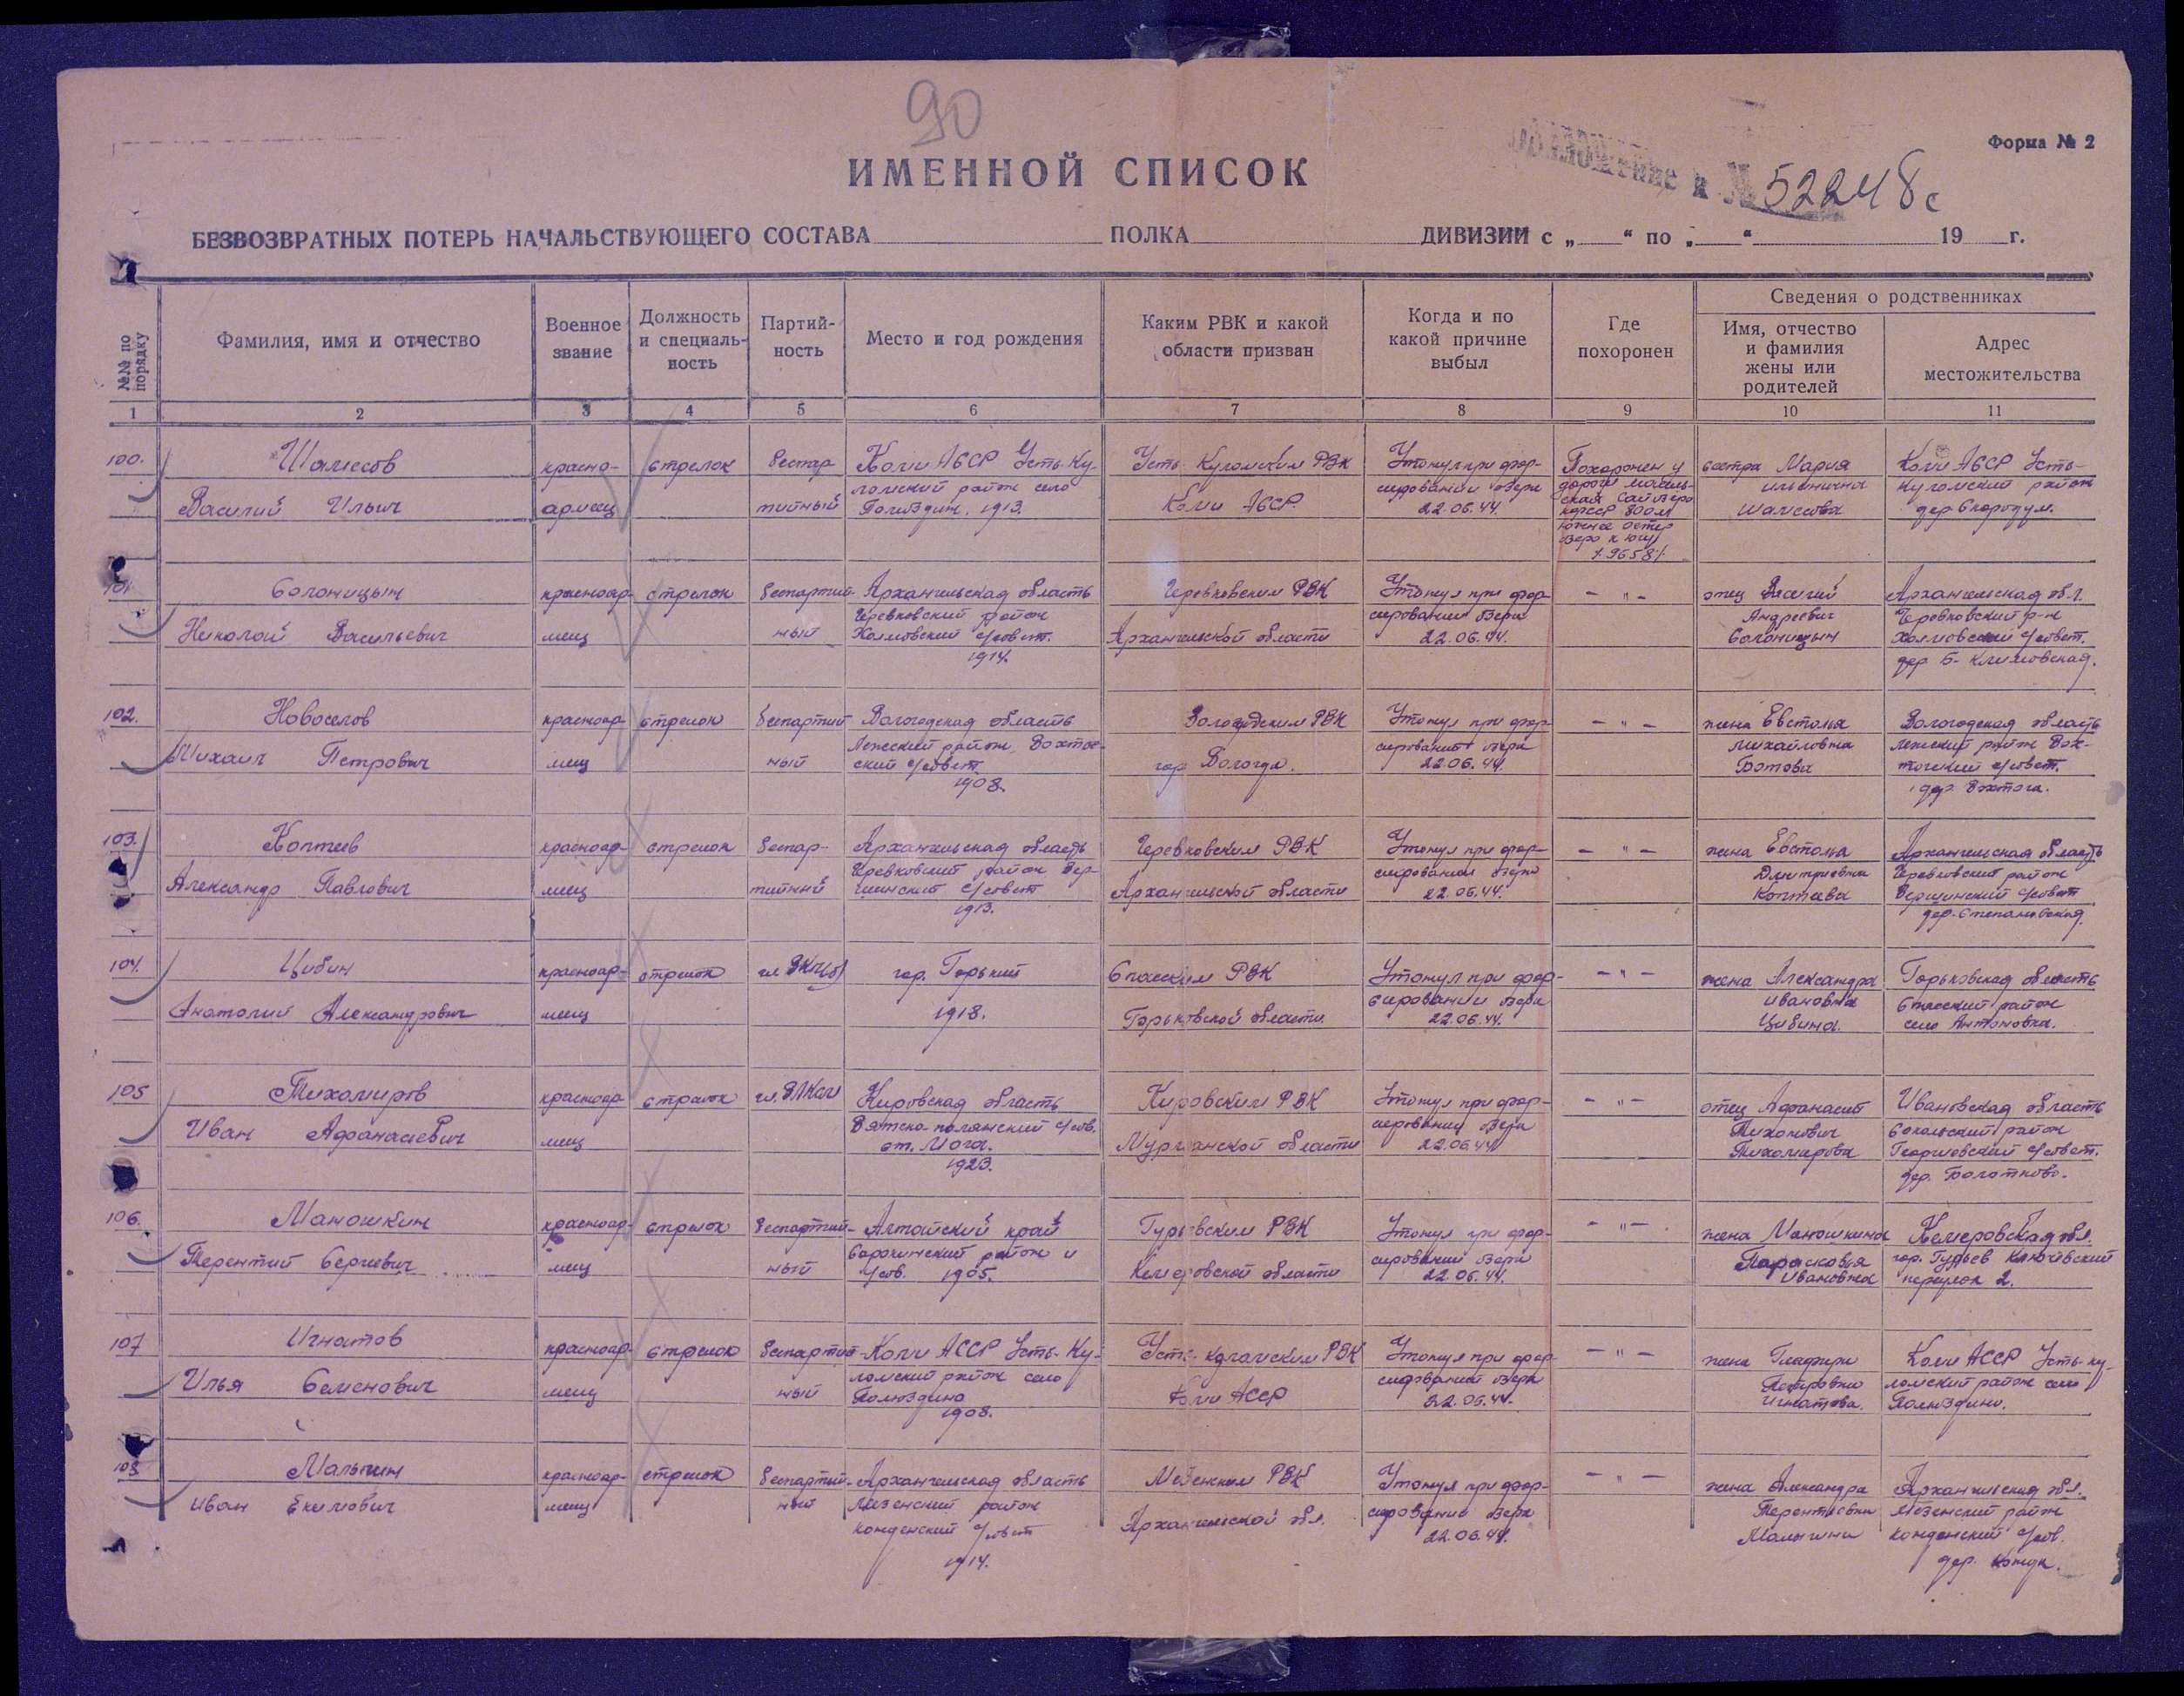 90
Форма № 2
ИМЕННОЙ СПИСОК
№ 52248с
БЕЗВОЗВРАТНЫХ ПОТЕРЬ НАЧАЛЬСТВУЮЩЕГО СОСТАВА ПОЛКА ДИВИЗИИ с „ “ по „ “ 19 г.
№№ по порядку
Фамилия, имя и отчество
Военное звание
Должность и специальность
Партийность
Место и год рождения
Каким РВК и какой области призван
Когда и по какой причине выбыл
Где похоронен
Сведения о родственниках
Имя, отчество и фамилия жены или родителей
Адрес местожительства
1 2 3 4 5 6 7 8 9 10 11
100. Шамесов Василий Ильич
красно-армеец
стрелок
беспартийный
Коми АССР Усть-Куломский район село 1913.
Усть Куломским РВК Коми АССР
Утонул при форсировании озера 22.06.44.
Похоронен у дороги
800 м южнее
сестра Мария Ильинична Шамесова
Коми АССР Усть-Куломский район дер. Скородум.
101. Солоницын Николай Васильевич
красноармеец
стрелок
беспартийный
Архангельская область Черевковский район Холмовский с/совет. 1914.
Черевковским РВК Архангельской области
Утонул при форсировании озера 22.06.44.
— " —
отец Василий Андреевич Солоницын
Архангельская обл. Черевковский р-н с/совет. дер Б-Климовская.
102. Новоселов Михаил Петрович
красноармеец
стрелок
беспартийный
Вологодская область Лежский район, с/совет. 1908.
Вологодским РВК гор Вологда.
Утонул при форсировании озера 22.06.44.
— " —
жена Евстолья Михайловна Ботова
Вологодская область Лежский район с/совет. дер Вохтога.
103. Коптев Александр Павлович
красноармеец
стрелок
беспартийный
Архангельская область Черевковский район Вершинский с/совет 1913.
Черевковским РВК Архангельской области
Утонул при форсировании озера 22.06.44.
— " —
жена Евстолья Дмитриевна Коптева
Архангельская область Черевковский район Вершинский с/совет дер. Степановская.
104. Цибин Анатолий Александрович
красноармеец
стрелок
чл ВКП(б)
гор. Горький 1918.
Спасским РВК Горьковской области.
Утонул при форсировании озера 22.06.44.
— " —
жена Александра Ивановна Цибина.
Горьковская область Спасский район село Антоновка.
105 Тихомиров Иван Афанасиевич
красноармеец
стрелок
чл. ВЛКСМ
Кировская область Вятско-полянский с/сов. 1923.
Кировским РВК Мурманской области
Утонул при форсировании озера 22.06.44
— " —
отец Афанасий Тихонович Тихомирова
Ивановская область Сокольский район Георгиевский с/совет. дер. Болотново.
106. Маношкин Терентий Сергиевич
красноармеец
стрелок
беспартийный
Алтайский край Сорокинский район и с/сов. 1905.
Гурьевским РВК Кемеровской области
Утонул при форсировании озера 22.06.44.
— " —
жена Маношкина Парасковья Ивановна
Кемеровская обл. гор. Гурьев Ключевский переулок 2.
107 Игнатов Илья Семенович
красноармеец
стрелок
беспартийный
Коми АССР Усть-Куломский район село 1908.
Усть-Куломским РВК Коми АССР
Утонул при форсировании озера 22.06.44.
— " —
жена Глафири Петровни Игнатова.
Коми АССР Усть-Куломский район село
108 Малыгин Иван Екимович
красноармеец
стрелок
беспартийный
Архангельская область Мезенский район с/совет 1914.
Мезенским РВК Архангельской обл.
Утонул при форсировании озера 22.06.44.
— " —
жена Александра Терентьевни Малыгини
Архангельская обл. Мезенский район с/сов. дер.